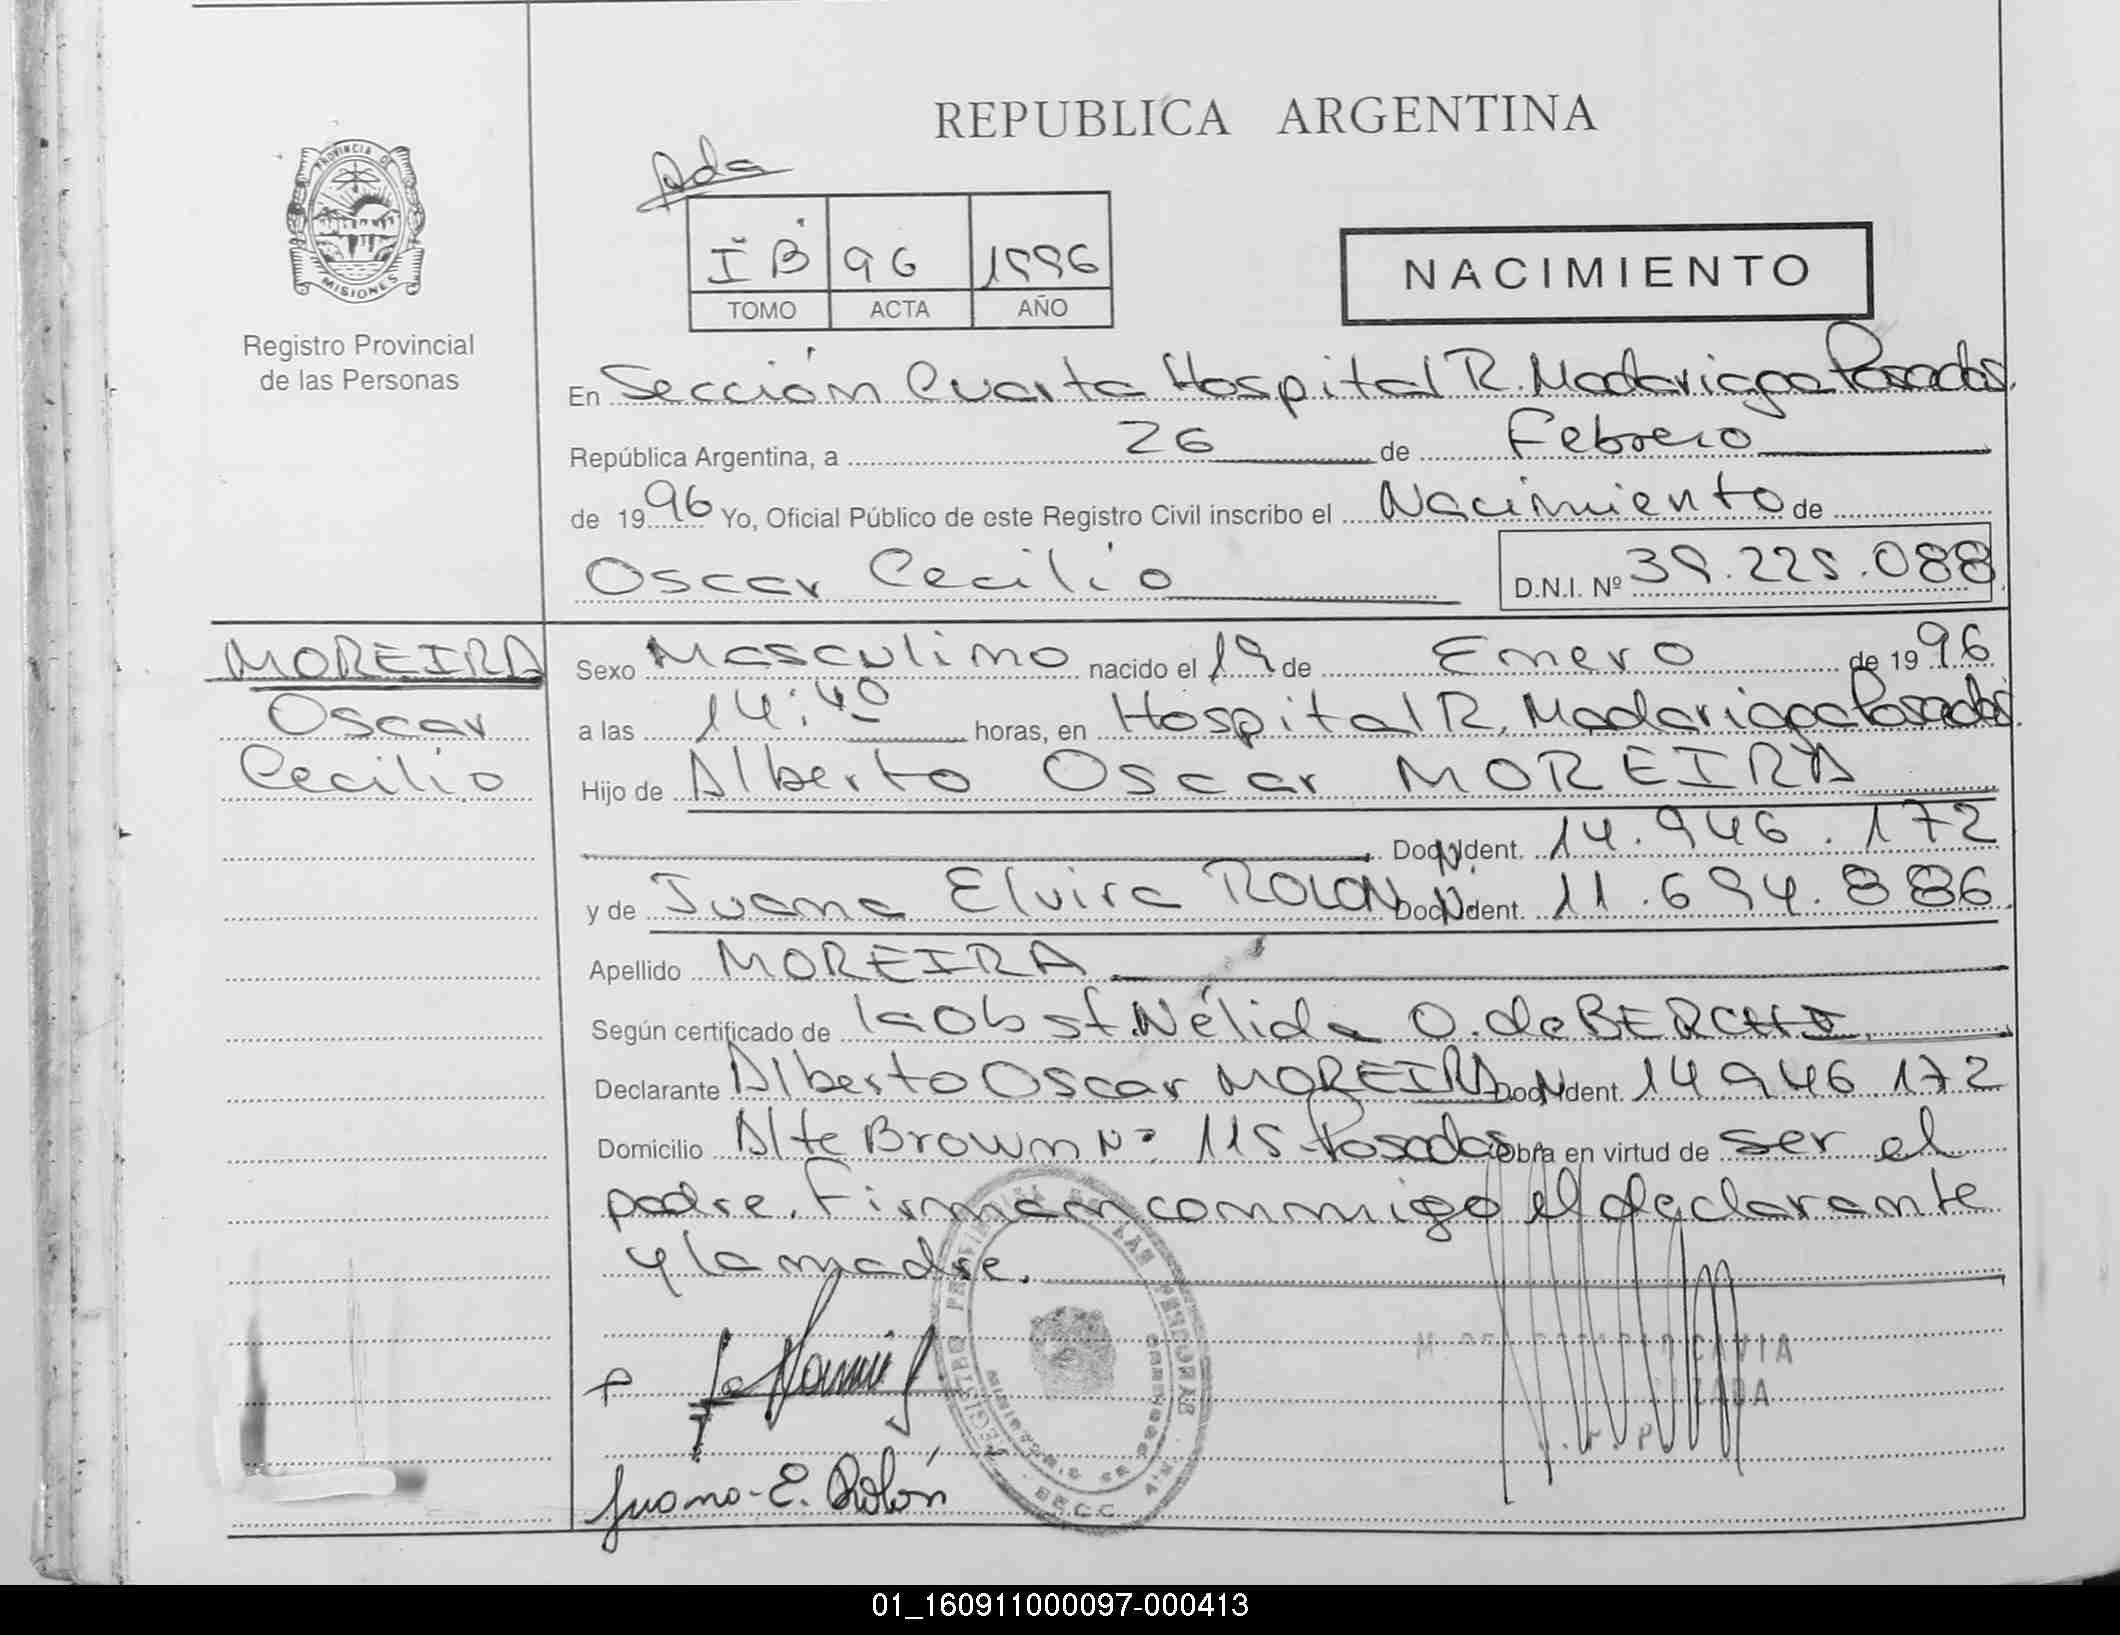 REPUBLICA ARGENTINA
PROVINCIA DE
MISIONES
Registro Provincial
de las Personas
I B 96 1996
TOMO ACTA AÑO
NACIMIENTO
En Sección Cuarta Hospital R. Madariaga Posadas.
República Argentina, a 26 de Febrero
de 1996 Yo, Oficial Público de este Registro Civil inscribo el Nacimiento de
Oscar Cecilio D.N.I. Nº 39.225.088
MOREIRA
Oscar
Cecilio
Sexo Masculino nacido el 19 de Enero de 1996
a las 14:40 horas, en Hospital R. Madariaga Posadas.
Hijo de Alberto Oscar MOREIRA
Doc. Ident. 14.946.172
y de Juana Elvira ROLON Doc. Ident. 11.694.886
Apellido MOREIRA
Según certificado de la Obst. Nélida O. de BERCHI
Declarante Alberto Oscar MOREIRA Doc. Ident. 14.946.172
Domicilio Alte Brown Nº 115 Posadas Obra en virtud de ser el
padre. Firman conmigo el declarante
y la madre.
Juana E. Rolón
01_160911000097-000413